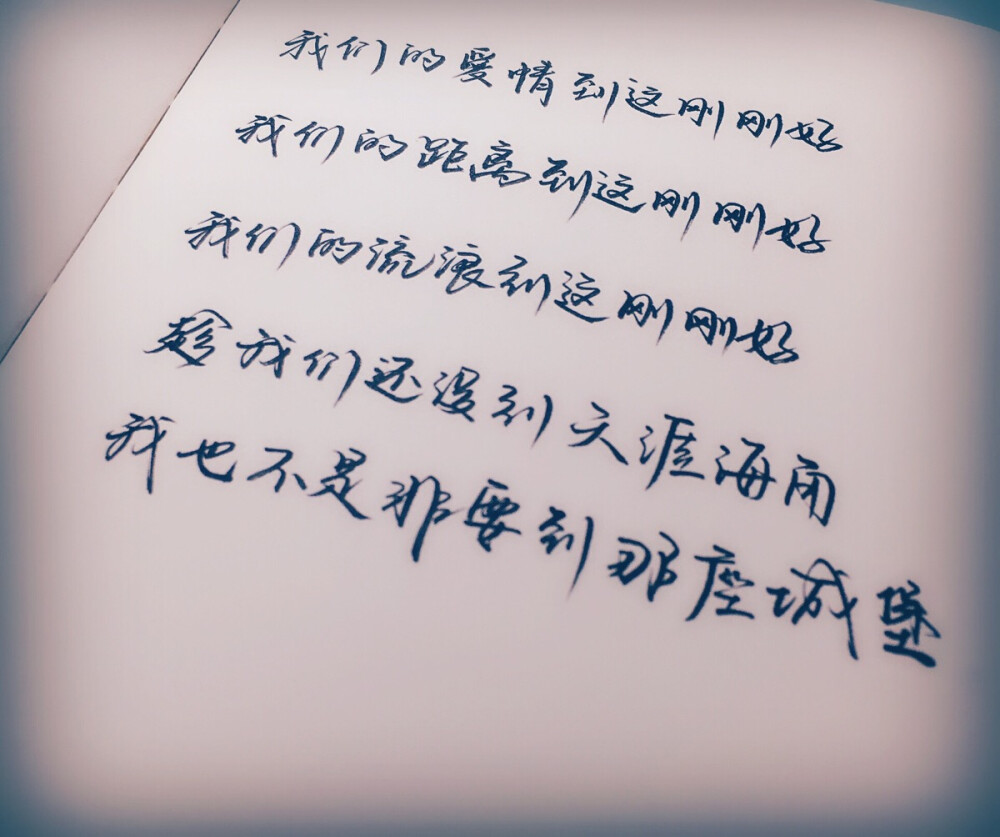 我们的爱情到这刚刚好
我们的距离到这刚刚好
我们的流浪到这刚刚好
趁我们还没到天涯海角
我也不是非要到那座城堡